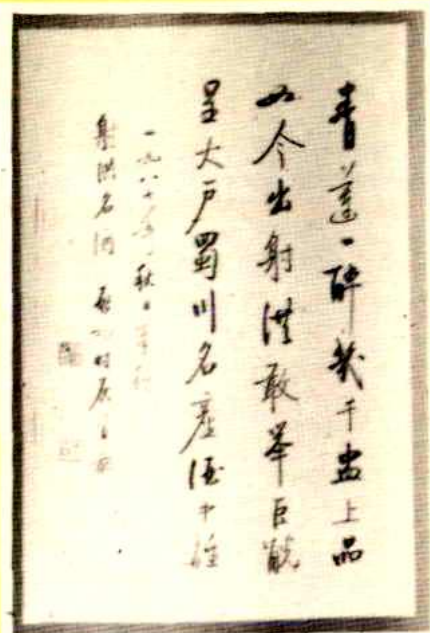 青莲一醉几千盅上品
如今出射洪敢举巨觥
呈大户蜀川名产酒中雄
一九八 年秋日
射洪名酒 启功时